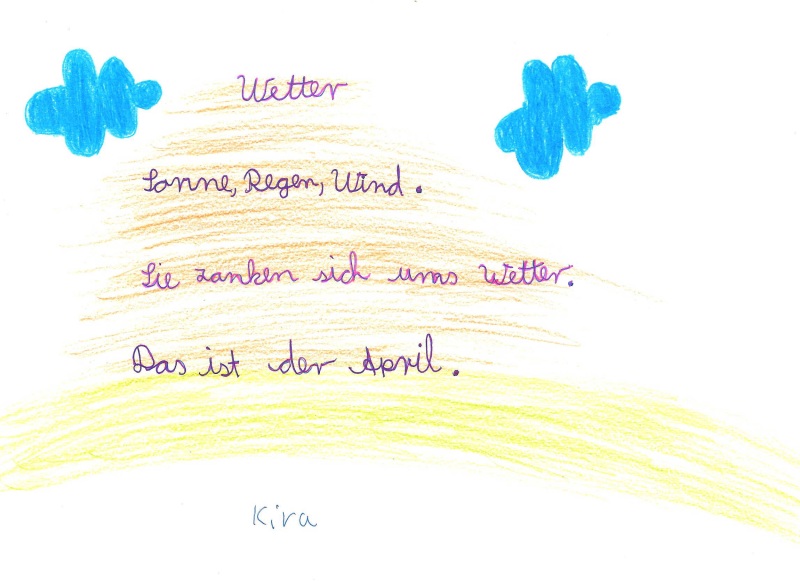 Wetter
Sonne, Regen, Wind.
Sie zanken sich ums Wetter.
Das ist der April.
Kira